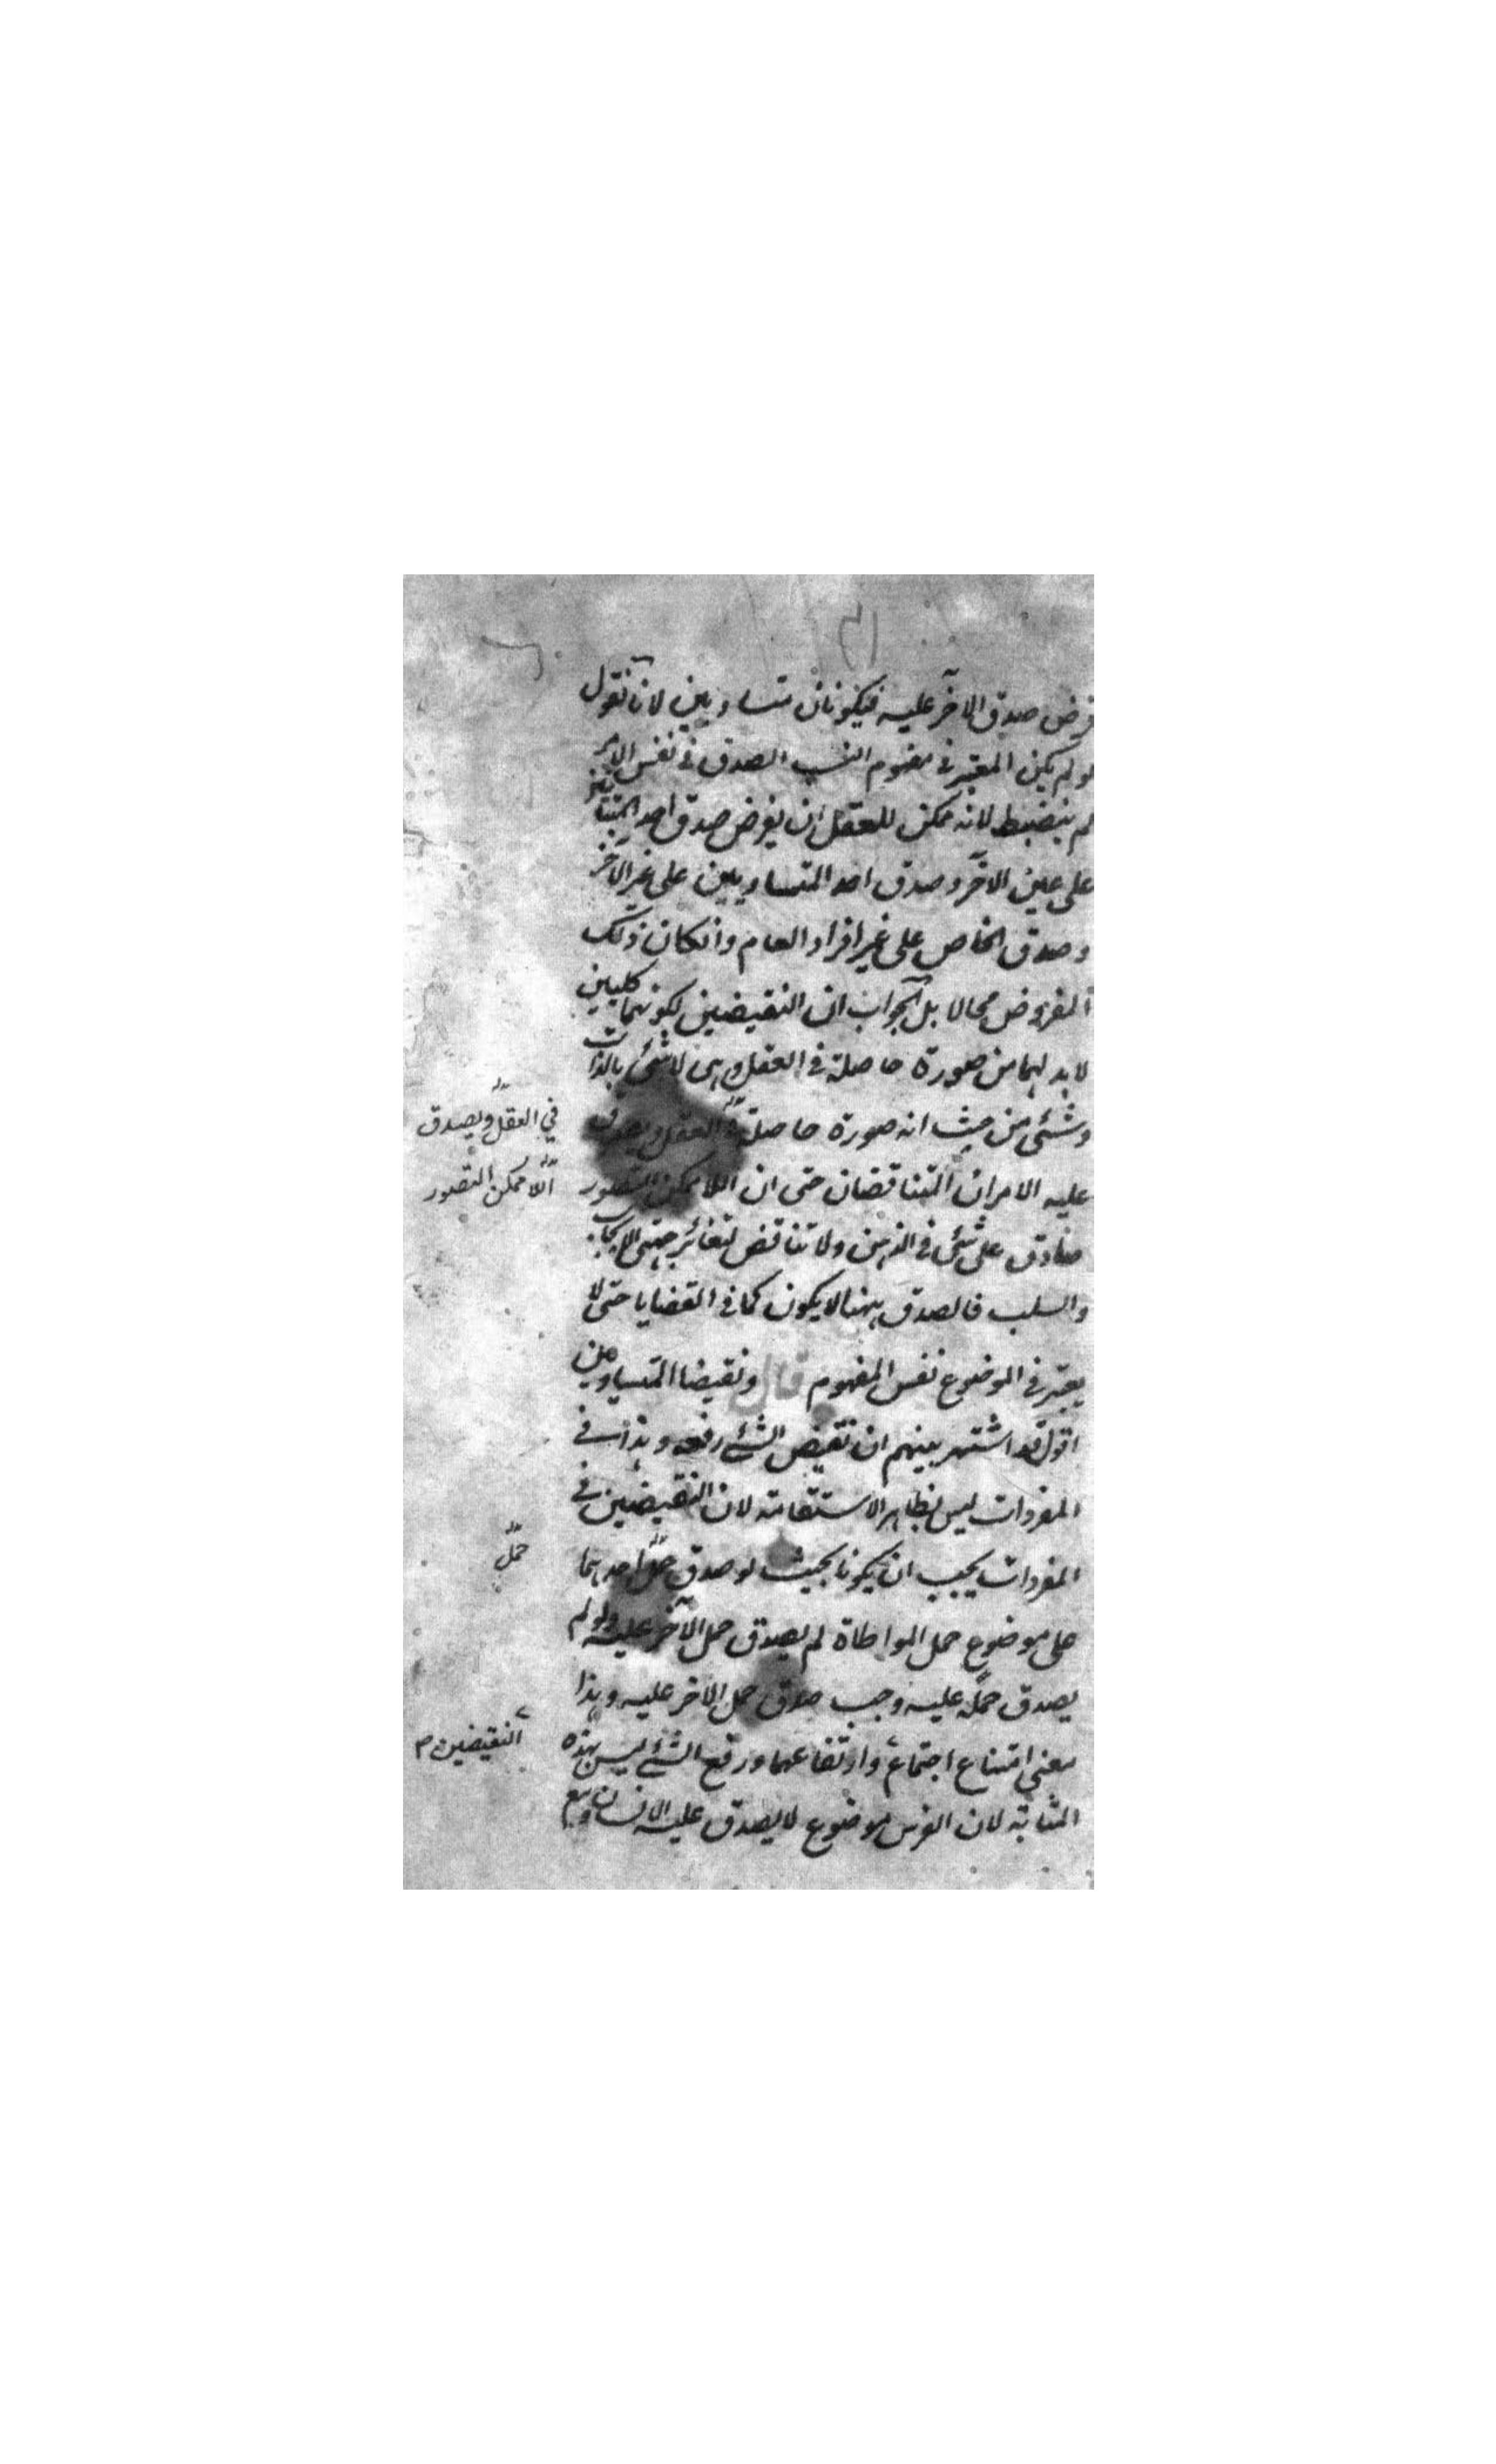 فرض صدق الآخر عليه فيكونان متساويين لانا نقول
لو لم يكن المعتبر في مفهوم النسب الصدق في نفس الامر
لم ينضبط لانه ممكن للعقل ان يفرض صدق احد المتباينين
على عين الآخر وصدق احد المتساويين على غير الآخر
وصدق الخاص على غير افراد العام وانكان ذلك
المفروض محالا بل الجواب ان النقيضين لكونهما كليين
لا بد لهما من صورة حاصلة في العقل وهى لا شئ بالذات
وشئ من حيث انه صورة حاصلة في العقل ويصدق
عليه الامران المتناقضان حتى ان اللاممكن التصور
صادق على شئ في الذهن ولا تناقض لتغائر جهتى الايجاب
والسلب فالصدق ههنا لا يكون كما في القضايا حتى لا
يعتبر في الموضوع نفس المفهوم قال ونقيضا المتساويين
اقول قد اشتهر بينهم ان نقيض الشئ رفعه وهذا في
المفردات ليس بظاهر الاستقامة لان النقيضين في
المفردات يجب ان يكونا بحيث لو صدق حمل احدهما
على موضوع حمل المواطاة لم يصدق حمل الآخر عليه ولو لم
يصدق حمله عليه وجب صدق حمل الاخر عليه وهذا
معنى امتناع اجتماع وارتفاعهما ورفع الشئ ليس بهذه
المثابة لان الفرس موضوع لا يصدق عليه الانسان
في العقل ويصدق
اللاممكن التصور
حمل
النقيضين م